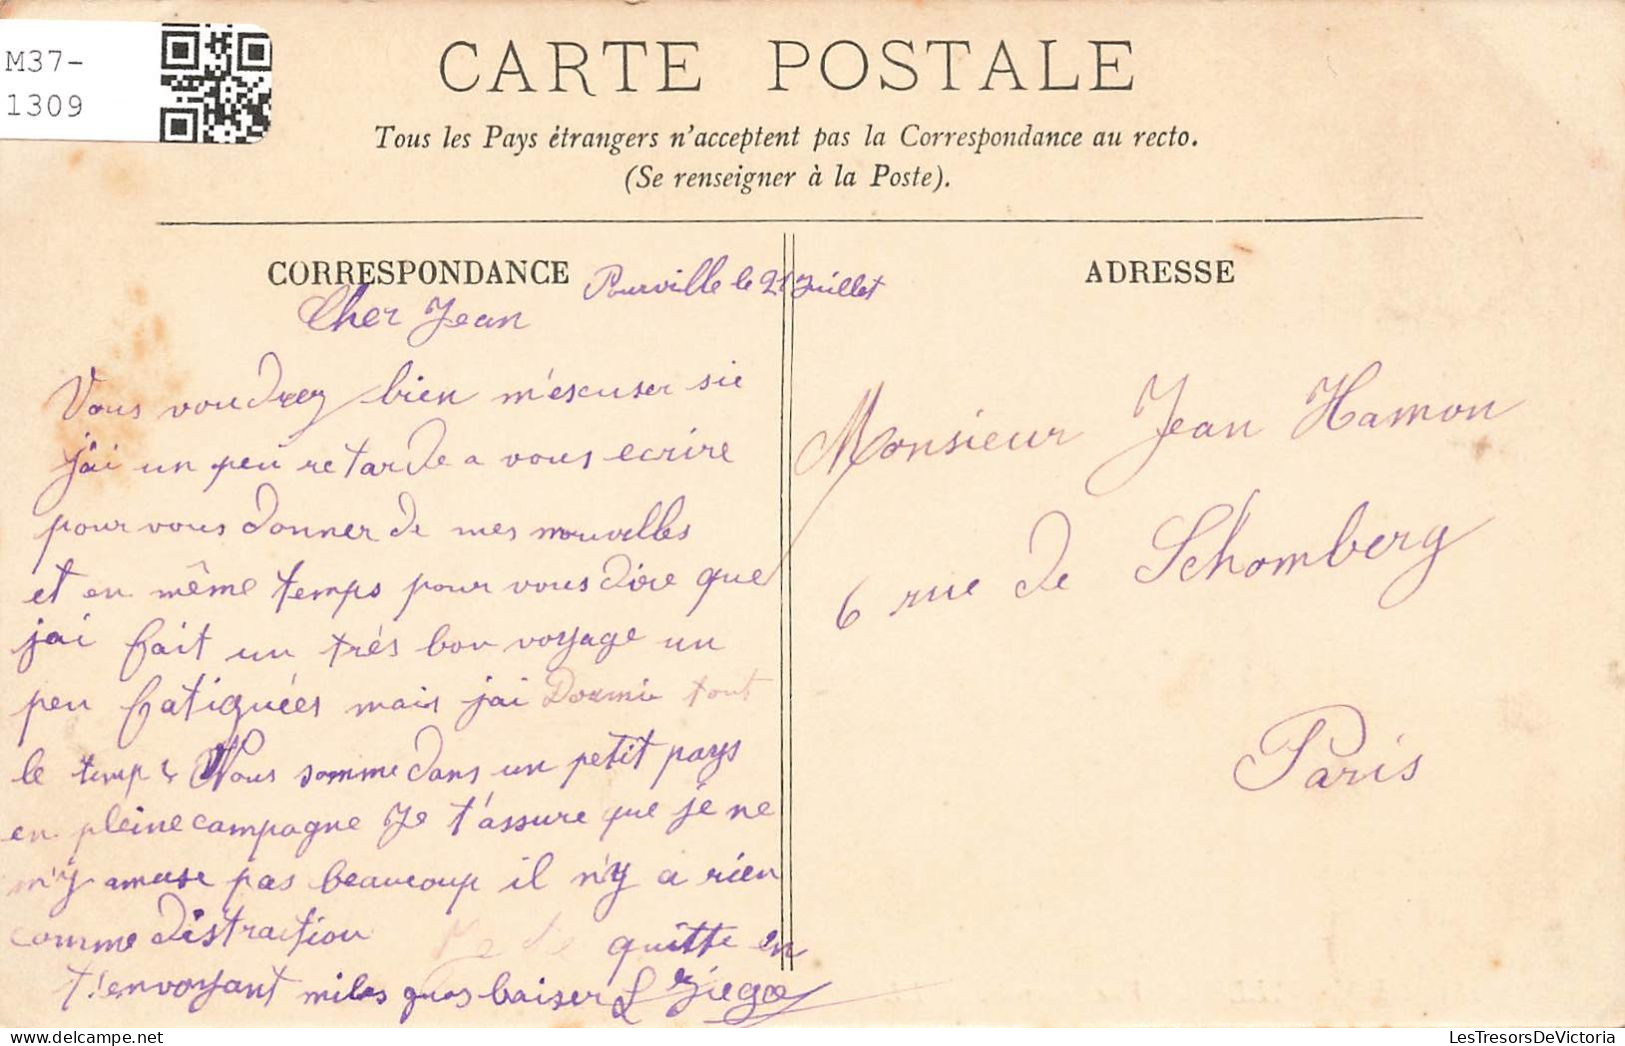 M37-
1309
CARTE POSTALE
Tous les Pays étrangers n'acceptent pas la Correspondance au recto.
(Se renseigner à la Poste).
CORRESPONDANCE
Pourville le 21 Juillet
Cher Jean
Vous voudrez bien m'escuser sie
j'ai un peu retarde a vous ecrire
pour vous donner de mes nouvelles
et en même temps pour vous dire que
jai fait un très bon voyage un
peu fatiguées mais jai Dormie tout
le temps Nous somme dans un petit pays
en pleine campagne Je t'assure que je ne
m'y amuse pas beaucoup il n'y a rien
comme distraction Je te quitte en
t'envoyant miles gros baisers L
ADRESSE
Monsieur Jean Hamon
6 rue de Schomberg
Paris
LesTresorsDeVictoria